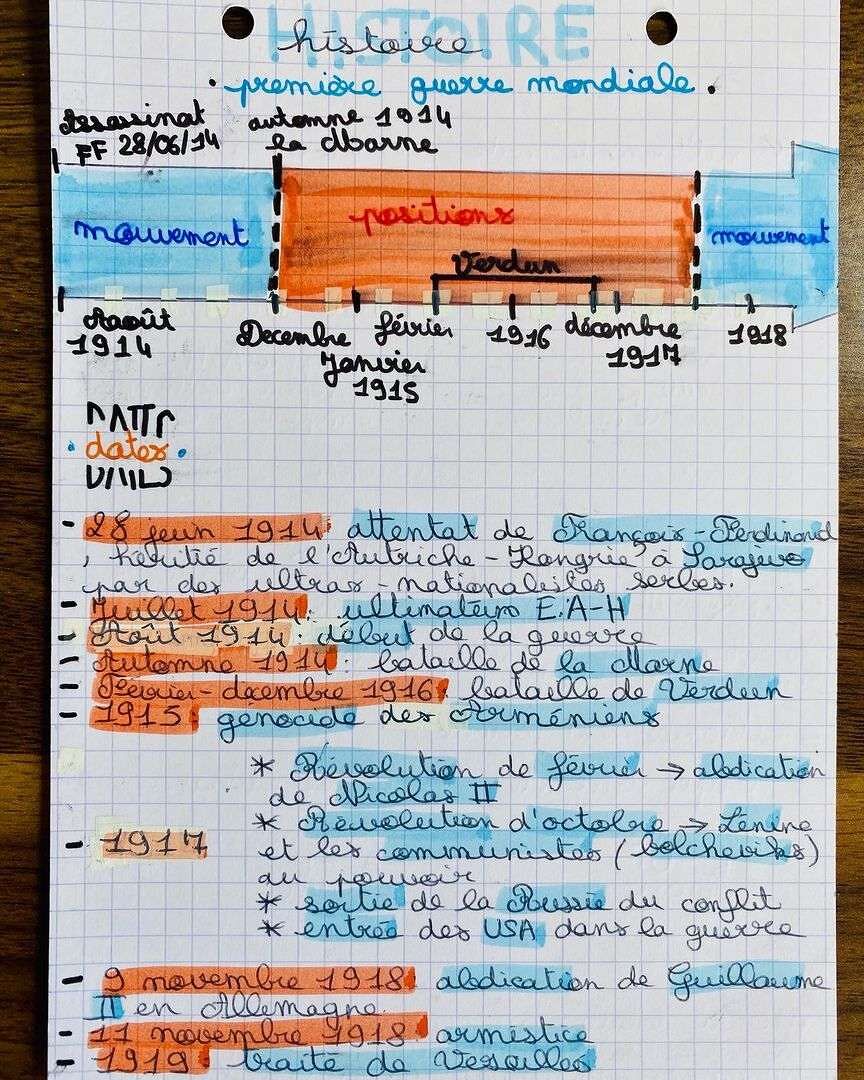 HISTOIRE
histoire
• première guerre mondiale.
Assassinat automne 1914
FF 28/06/14 la Marne
mouvement positions mouvement
Verdun
Août Decembre février 1916 décembre 1918
1914 Janvier 1917
1915
• dates •
- 28 juin 1914 attentat de François-Ferdinand
, héritié de l'Autriche-Hongrie à Sarajevo
par des ultras-nationalistes serbes.
- Juillet 1914: ultimatum E.A-H
- Août 1914: début de la guerre
- Automne 1914: bataille de la Marne
- Février-décembre 1916: bataille de Verdun
- 1915: génocide des Arméniens
* Révolution de février → abdication
de Nicolas II
* Révolution d'octobre → Lénine
- 1917
et les communistes (bolcheviks)
au pouvoir
* sortie de la Russie du conflit
* entrée des USA dans la guerre
- 9 novembre 1918: abdication de Guillaume
II en Allemagne.
- 11 novembre 1918 armistice
- 1919: traité de Versailles